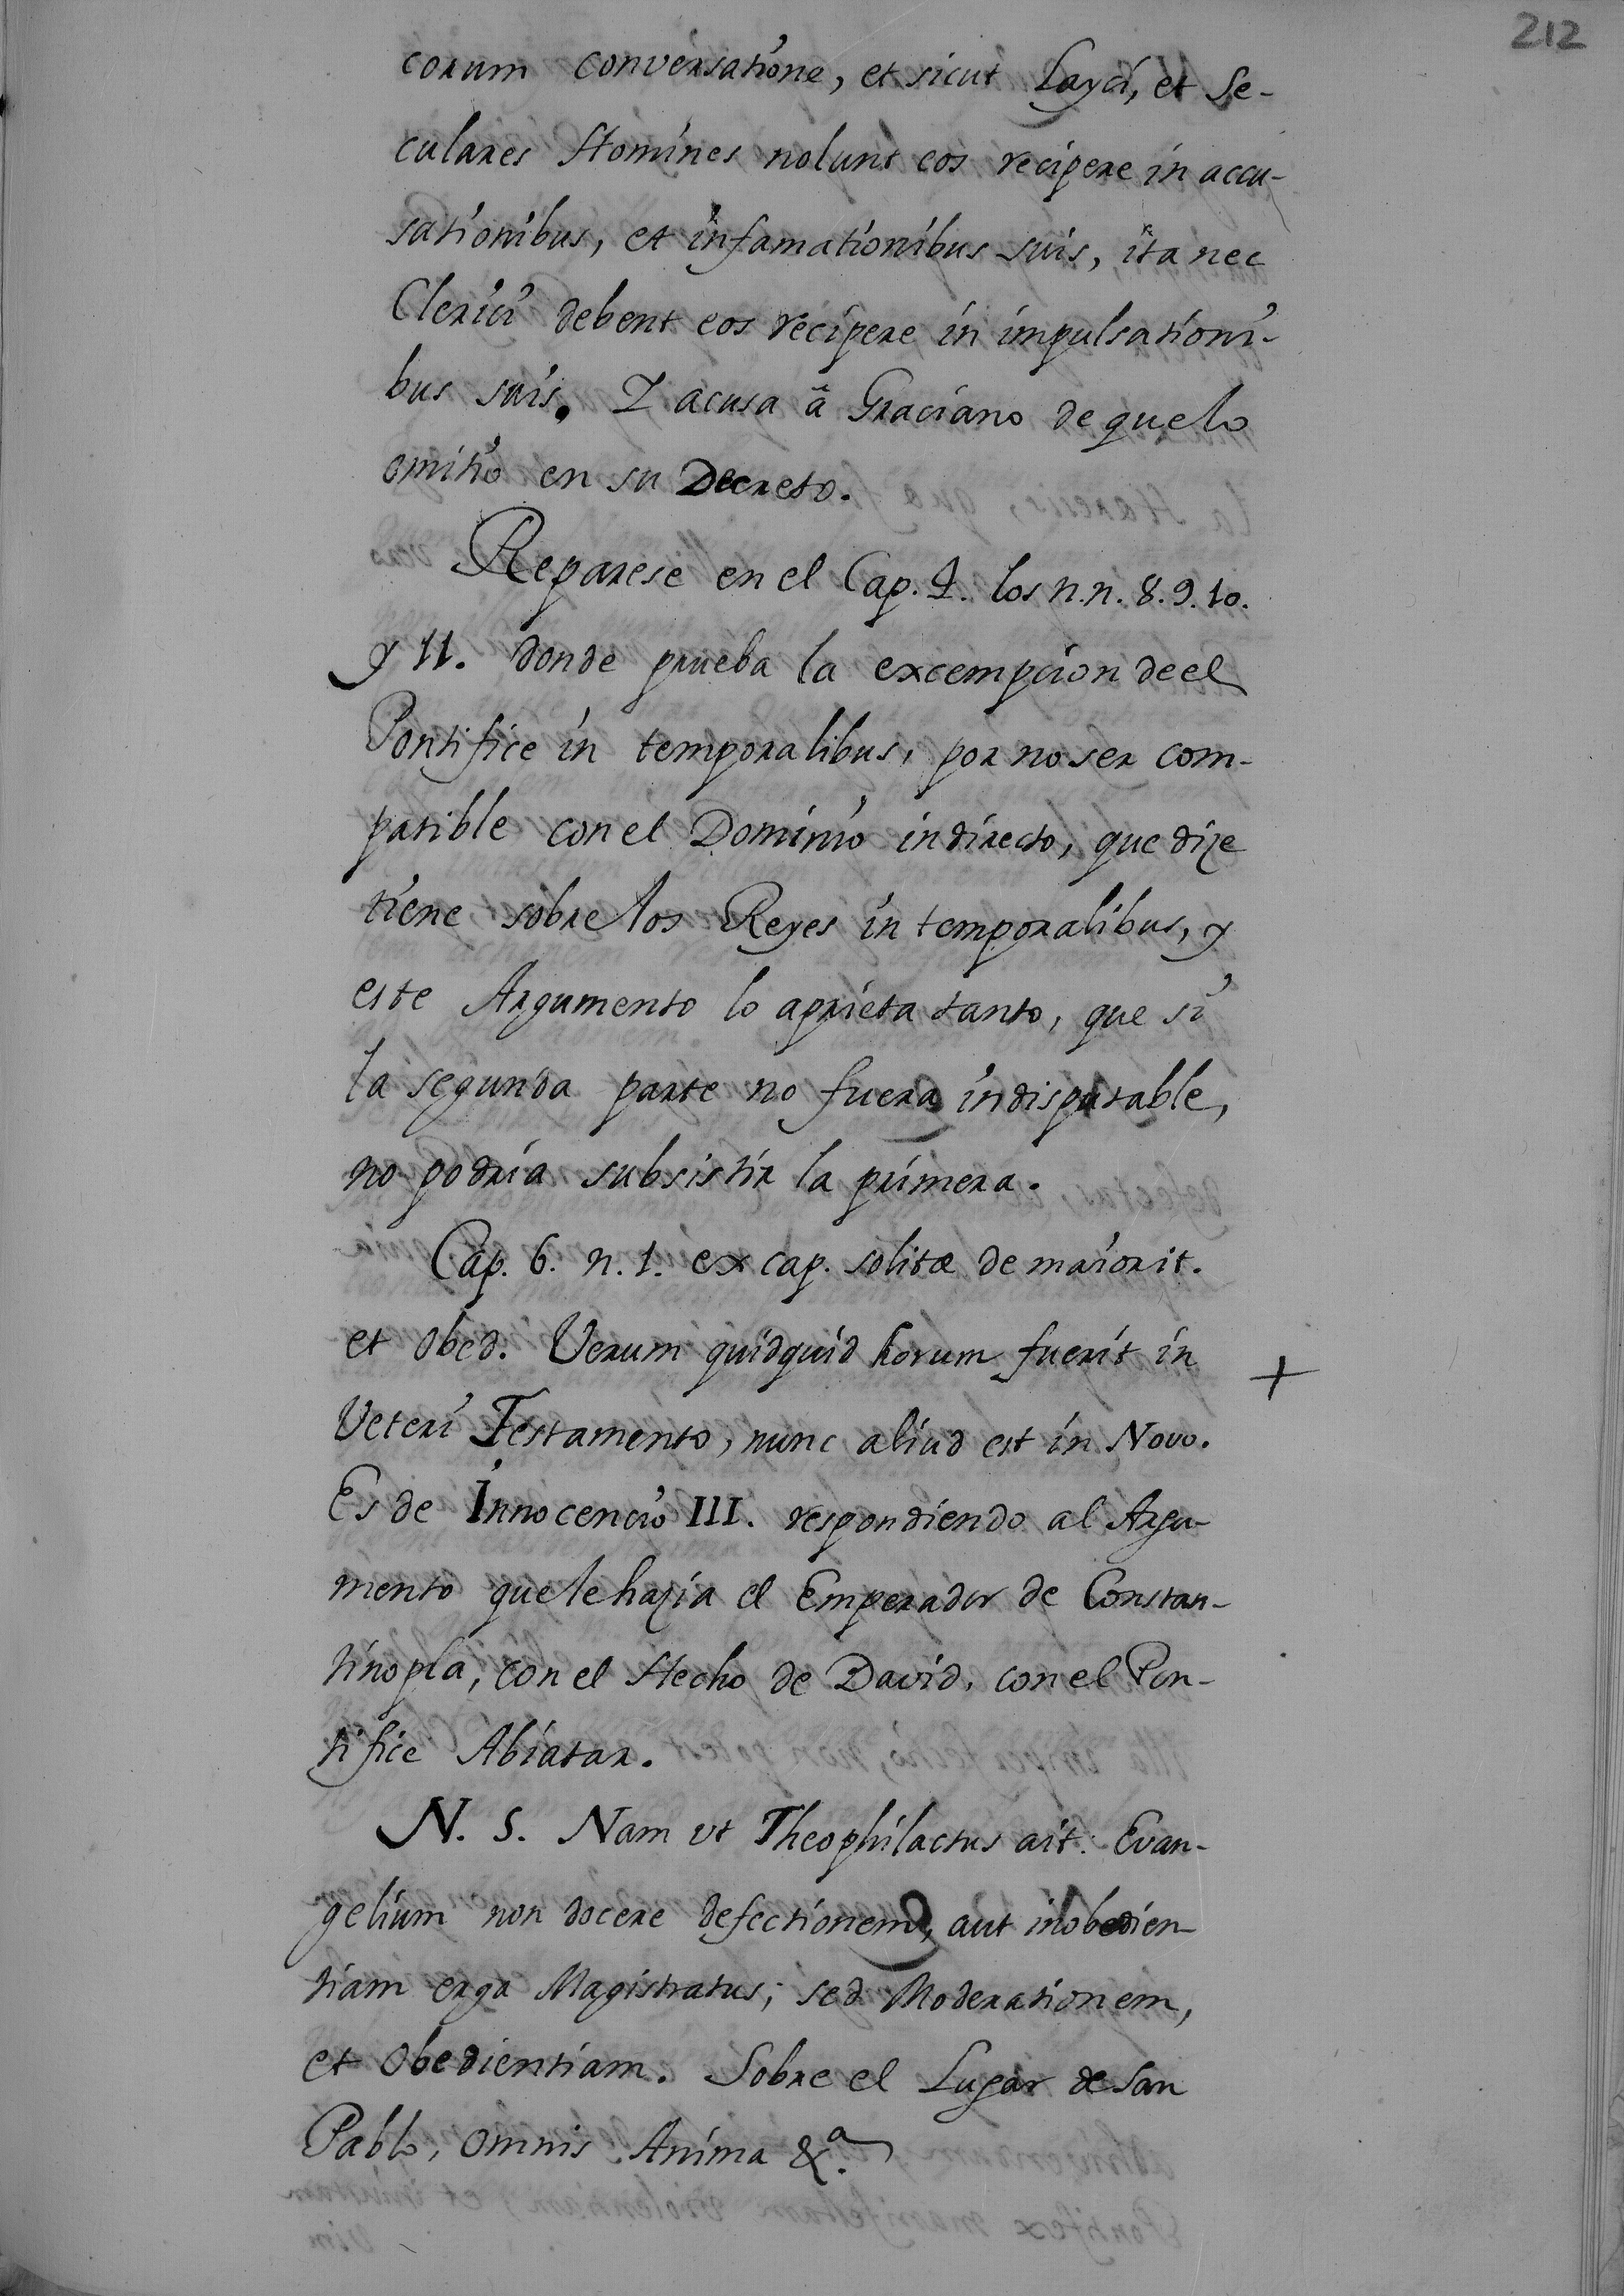 212
corum conversatione, et sicut Layci, et Se-
culares Homines nolunt eos recipere in accu-
sationibus, et infamationibus suis, ita nec
Clerici debent eos recipere in impulsationi-
bus suis. I acusa â Graciano de que lo
omitió en su Decreto.
Reparese en el Cap. 2. los n.n. 8. 9. 10.
y 11. donde prueba la excempcion de el
Pontifice in temporalibus, por no ser com-
patible con el Dominio indirecto, que dize
tiene sobre los Reyes in temporalibus, y
este Argumento lo aprieta tanto, que si
la segunda parte no fuera indisputable,
no podria subsistir la primera.
Cap. 6. n. 1. ex cap. solitæ de maiorit.
et obed. Verum quidquid horum fuerit in +
Veteri Testamento, nunc aliud est in Novo.
Es de Innocencio III. respondiendo al Argu-
mento que le hazia el Emperador de Constan-
tinopla, con el Hecho de David, con el Pon-
tifice Abiatar.
N. 5. Nam vt Theophilactus ait: Evan-
gelium non docere defectionem, aut inobedien-
tiam erga Magistratus; sed Moderationem,
et Obedientiam. Sobre el Lugar de San
Pablo, omnis Anima &.ª